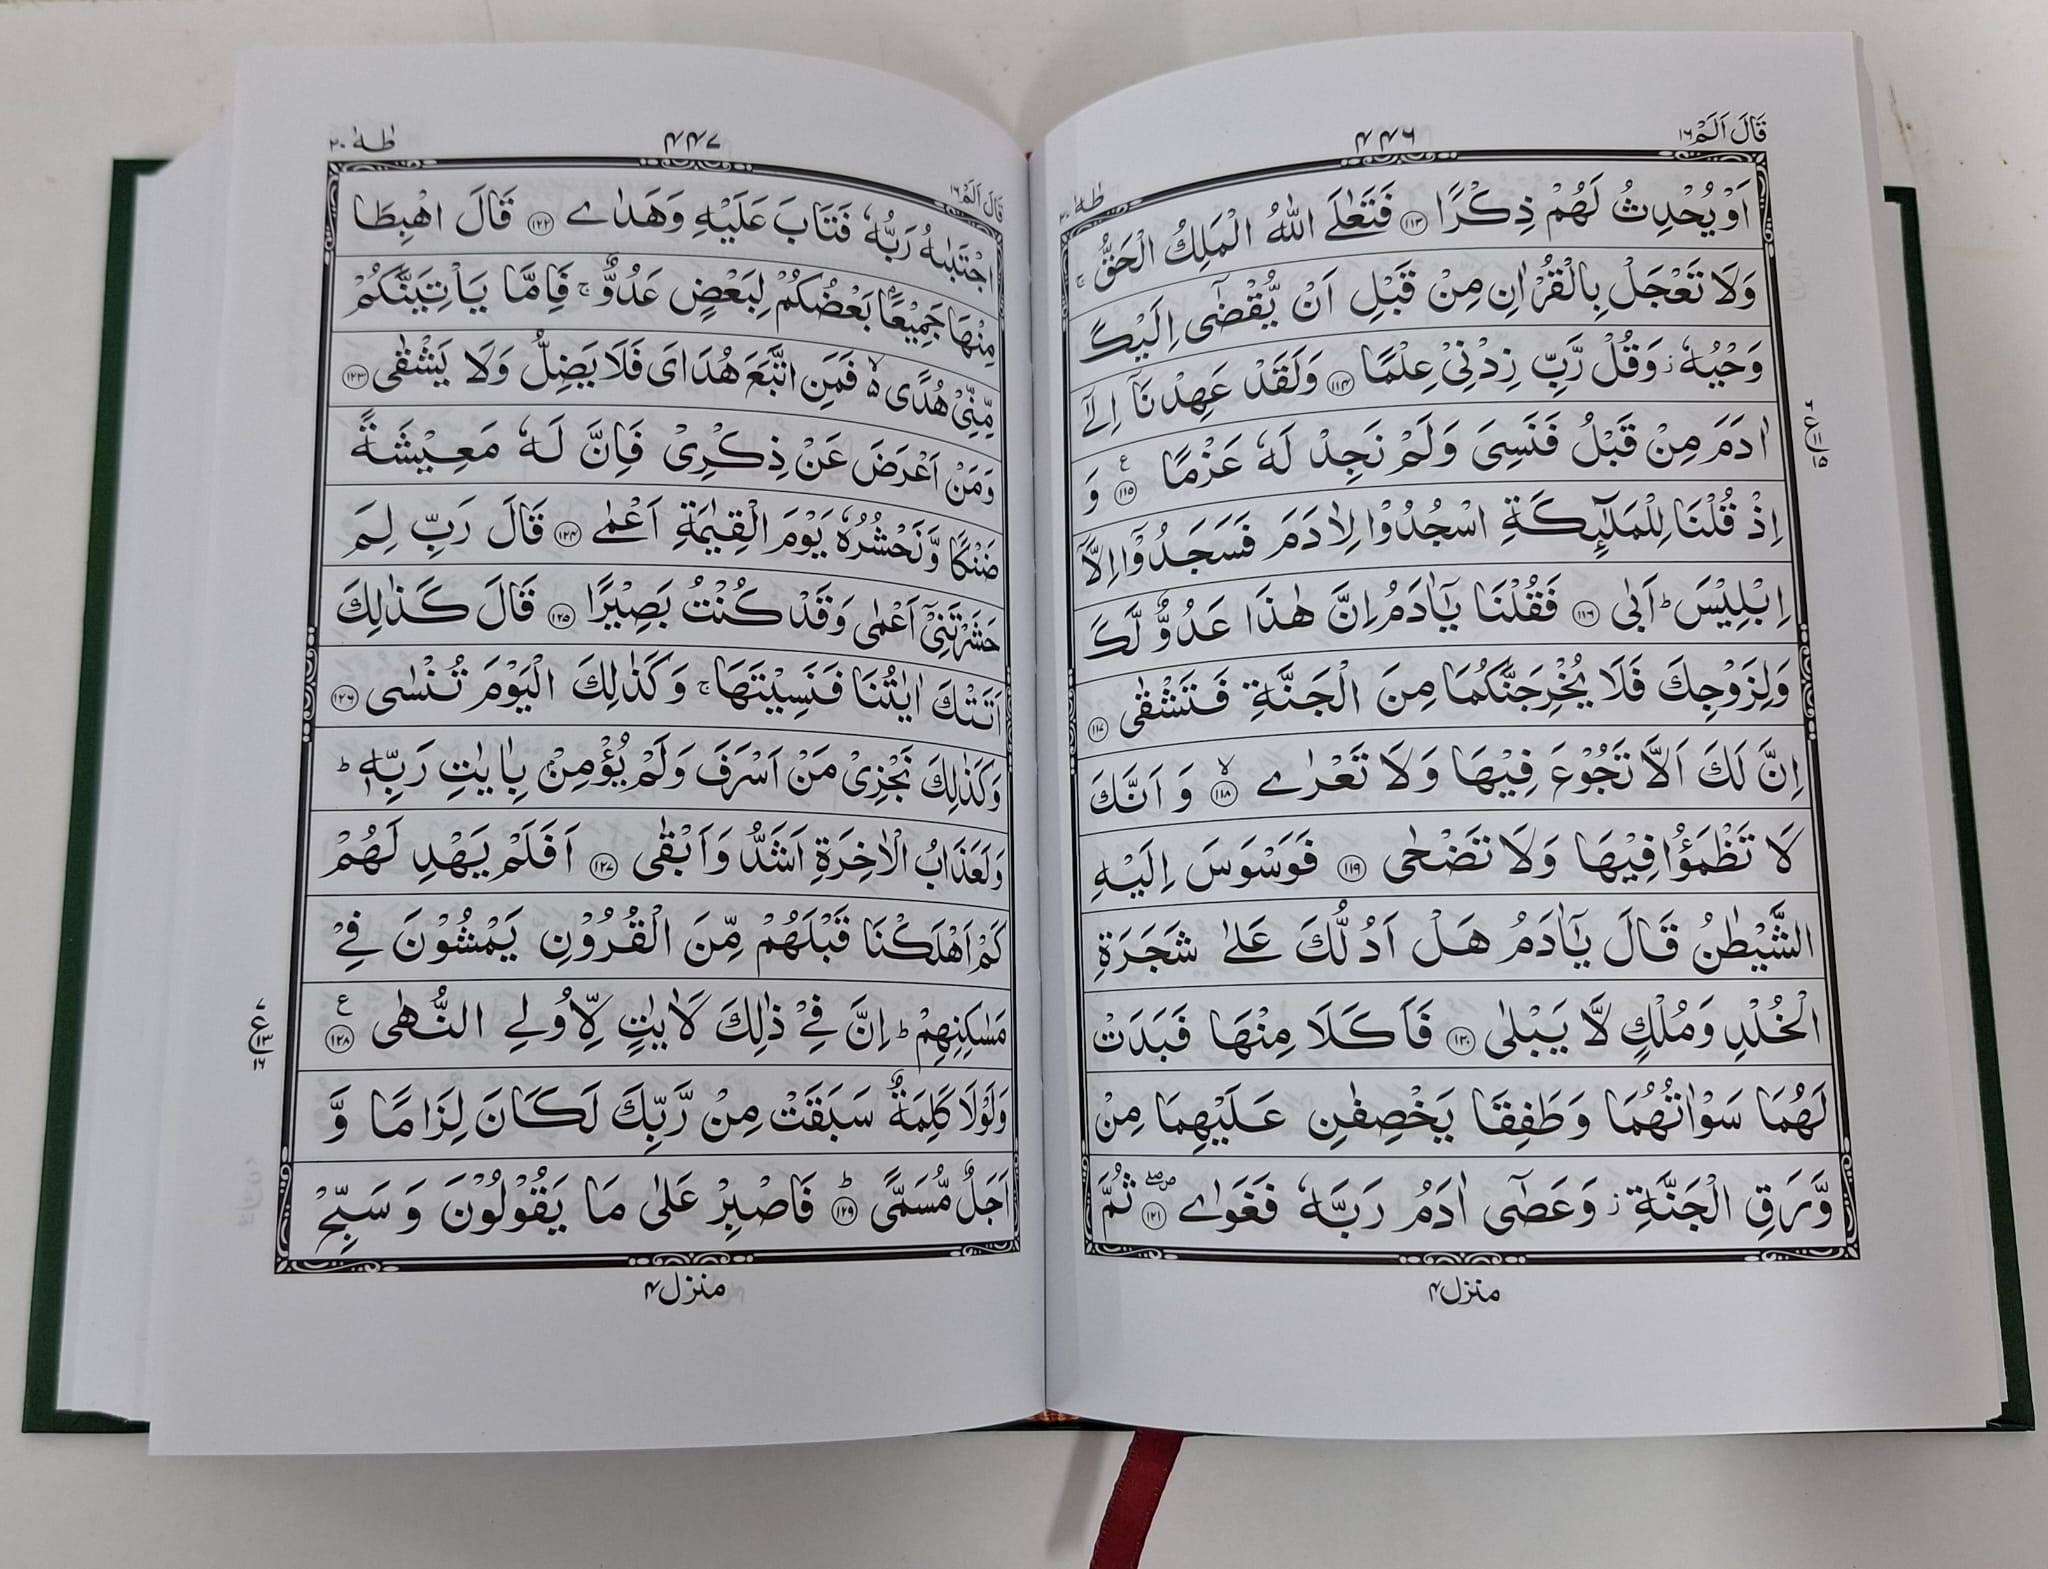 قَالَ اَلَمْ ١٦
۴۴۶
طٰهٰ ٢٠
اَوْ يُحْدِثُ لَهُمْ ذِكْرًا ﴿۱۱۳﴾ فَتَعٰلَى اللّٰهُ الْمَلِكُ الْحَقُّ ۚ
وَلَا تَعْجَلْ بِالْقُرْاٰنِ مِنْ قَبْلِ اَنْ يُّقْضٰٓى اِلَيْكَ
وَحْيُهٗ ز وَقُلْ رَّبِّ زِدْنِيْ عِلْمًا ﴿۱۱۴﴾ وَلَقَدْ عَهِدْنَآ اِلٰٓى
اٰدَمَ مِنْ قَبْلُ فَنَسِىَ وَلَمْ نَجِدْ لَهٗ عَزْمًا ﴿۱۱۵﴾ ع وَ
اِذْ قُلْنَا لِلْمَلٰٓئِكَةِ اسْجُدُوْا لِاٰدَمَ فَسَجَدُوْٓا اِلَّآ
اِبْلِيْسَ ؕ اَبٰى ﴿۱۱۶﴾ فَقُلْنَا يٰٓاٰدَمُ اِنَّ هٰذَا عَدُوٌّ لَّكَ
وَلِزَوْجِكَ فَلَا يُخْرِجَنَّكُمَا مِنَ الْجَنَّةِ فَتَشْقٰى ﴿۱۱۷﴾
اِنَّ لَكَ اَلَّا تَجُوْعَ فِيْهَا وَلَا تَعْرٰى ﴿۱۱۸﴾ ۙ وَ اَنَّكَ
لَا تَظْمَؤُا فِيْهَا وَلَا تَضْحٰى ﴿۱۱۹﴾ فَوَسْوَسَ اِلَيْهِ
الشَّيْطٰنُ قَالَ يٰٓاٰدَمُ هَلْ اَدُلُّكَ عَلٰى شَجَرَةِ
الْخُلْدِ وَمُلْكٍ لَّا يَبْلٰى ﴿۱۲۰﴾ فَاَكَلَا مِنْهَا فَبَدَتْ
لَهُمَا سَوْاٰتُهُمَا وَطَفِقَا يَخْصِفٰنِ عَلَيْهِمَا مِنْ
وَّرَقِ الْجَنَّةِ ز وَعَصٰٓى اٰدَمُ رَبَّهٗ فَغَوٰى ﴿۱۲۱﴾ ۖ ثُمَّ
منزل ۴
قَالَ اَلَمْ ١٦
۴۴۷
طٰهٰ ٢٠
اجْتَبٰىهُ رَبُّهٗ فَتَابَ عَلَيْهِ وَهَدٰى ﴿۱۲۲﴾ قَالَ اهْبِطَا
مِنْهَا جَمِيْعًاۢ بَعْضُكُمْ لِبَعْضٍ عَدُوٌّ ۚ فَاِمَّا يَاْتِيَنَّكُمْ
مِّنِّيْ هُدًى ۙ۵ فَمَنِ اتَّبَعَ هُدَاىَ فَلَا يَضِلُّ وَلَا يَشْقٰى ﴿۱۲۳﴾
وَمَنْ اَعْرَضَ عَنْ ذِكْرِىْ فَاِنَّ لَهٗ مَعِيْشَةً
ضَنْكًا وَّنَحْشُرُهٗ يَوْمَ الْقِيٰمَةِ اَعْمٰى ﴿۱۲۴﴾ قَالَ رَبِّ لِمَ
حَشَرْتَنِيْٓ اَعْمٰى وَقَدْ كُنْتُ بَصِيْرًا ﴿۱۲۵﴾ قَالَ كَذٰلِكَ
اَتَتْكَ اٰيٰتُنَا فَنَسِيْتَهَا ۚ وَكَذٰلِكَ الْيَوْمَ تُنْسٰى ﴿۱۲۶﴾
وَكَذٰلِكَ نَجْزِىْ مَنْ اَسْرَفَ وَلَمْ يُؤْمِنْۢ بِاٰيٰتِ رَبِّهٖ ؕ
وَلَعَذَابُ الْاٰخِرَةِ اَشَدُّ وَاَبْقٰى ﴿۱۲۷﴾ اَفَلَمْ يَهْدِ لَهُمْ
كَمْ اَهْلَكْنَا قَبْلَهُمْ مِّنَ الْقُرُوْنِ يَمْشُوْنَ فِيْ
مَسٰكِنِهِمْ ؕ اِنَّ فِيْ ذٰلِكَ لَاٰيٰتٍ لِّاُولِى النُّهٰى ﴿۱۲۸﴾ ع
وَلَوْلَا كَلِمَةٌ سَبَقَتْ مِنْ رَّبِّكَ لَكَانَ لِزَامًا وَّ
اَجَلٌ مُّسَمًّى ﴿۱۲۹﴾ ؕ فَاصْبِرْ عَلٰى مَا يَقُوْلُوْنَ وَ سَبِّحْ
منزل ۴